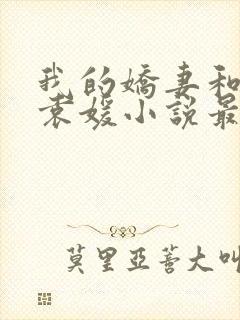 我的嬌妻和
袁媛小說最
莫里亞蒂大叫